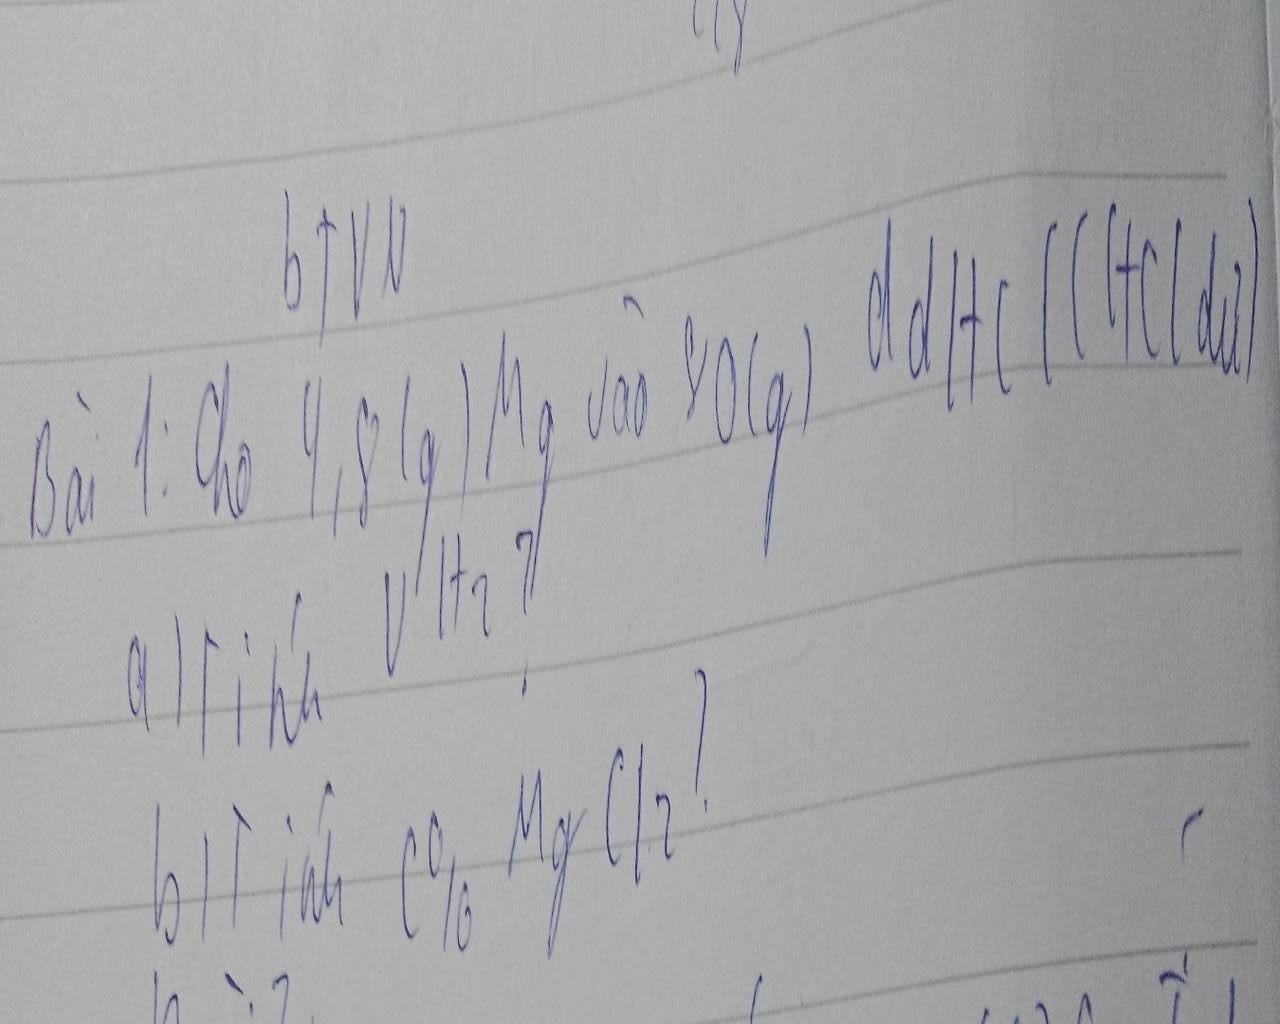 bTVN
Bài 1: Cho 4,8(g) Mg vào 80(g) ddHCl (HCl dư)
a) Tính VH2?
b) Tính C% MgCl2?